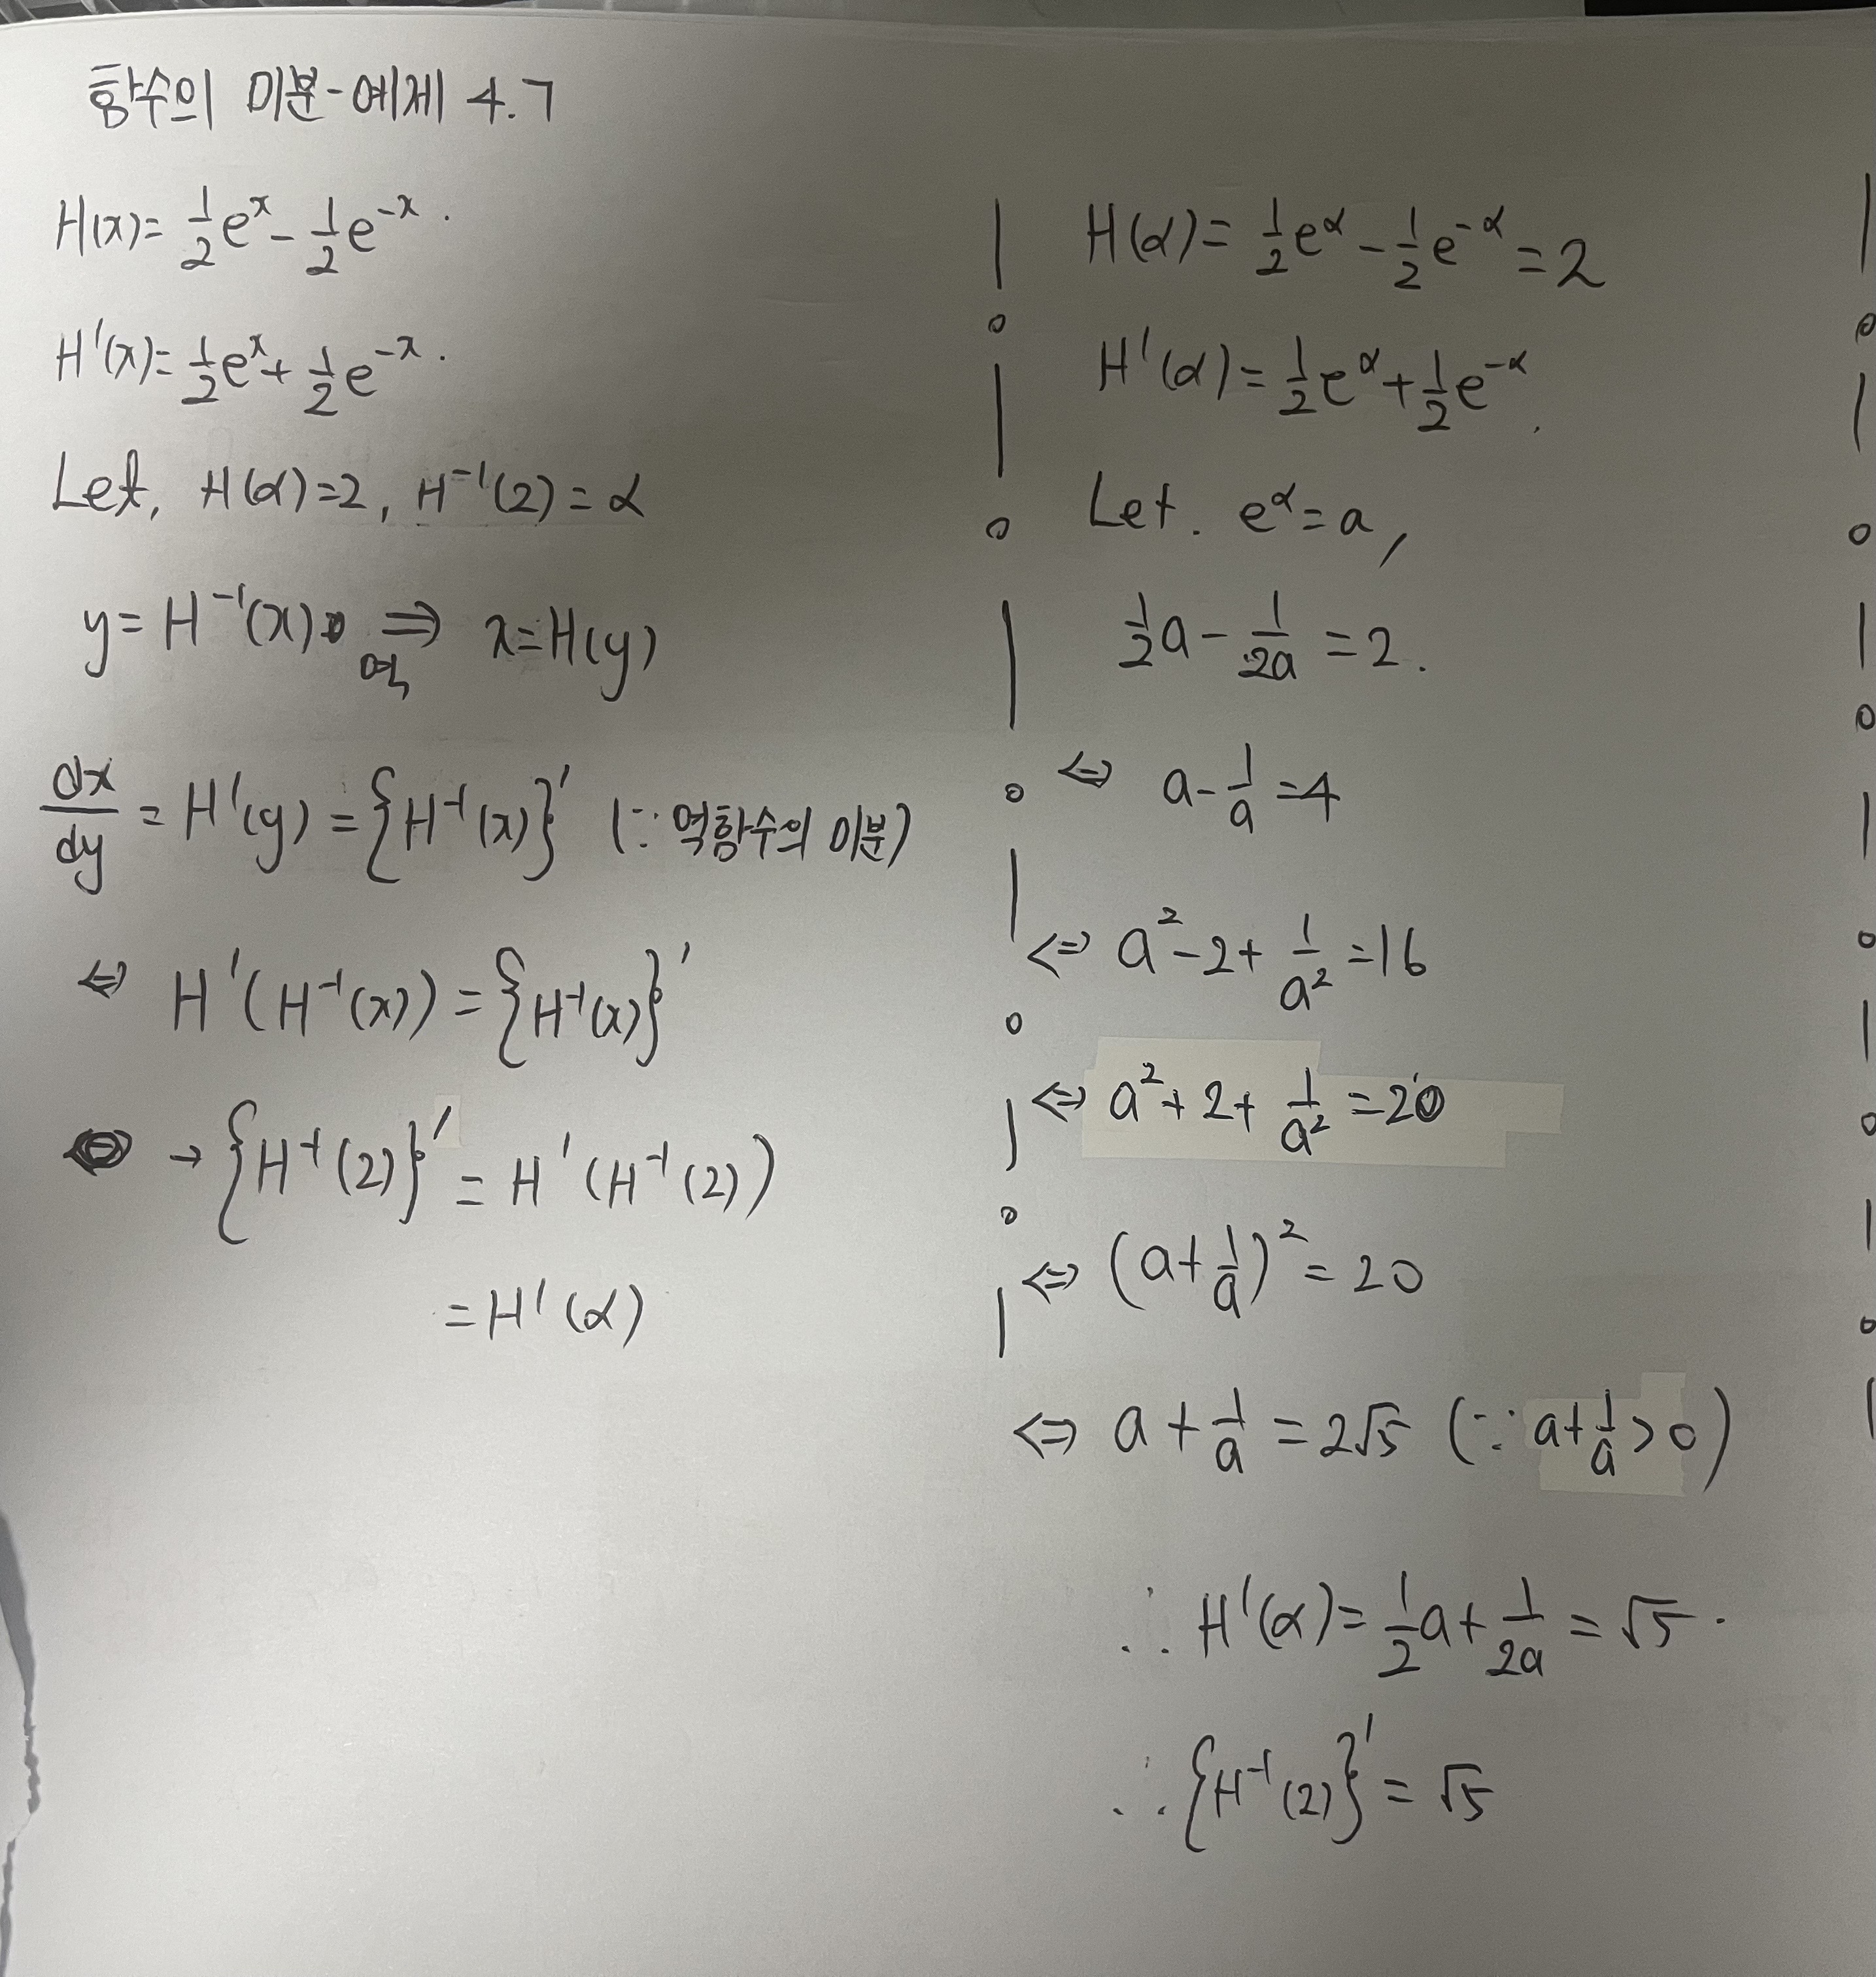 함수의 미분-예제 4.7
H(x)= 1/2 e^x - 1/2 e^-x .
H'(x)= 1/2 e^x + 1/2 e^-x .
Let, H(α)=2, H^-1(2)=α
y=H^-1(x) ⇒ x=H(y)
역
dx/dy = H'(y) = {H^-1(x)}' (∵ 역함수의 미분)
⇔ H'(H^-1(x)) = {H^-1(x)}'
→ {H^-1(2)}' = H'(H^-1(2))
= H'(α)
H(α)= 1/2 e^α - 1/2 e^-α = 2
H'(α)= 1/2 e^α + 1/2 e^-α .
Let. e^α = a,
1/2 a - 1/2a = 2.
⇔ a - 1/a = 4
⇔ a^2 - 2 + 1/a^2 = 16
⇔ a^2 + 2 + 1/a^2 = 20
⇔ (a + 1/a)^2 = 20
⇔ a + 1/a = 2√5 (∵ a + 1/a > 0)
∴ H'(α)= 1/2 a + 1/2a = √5 .
∴ {H^-1(2)}' = √5